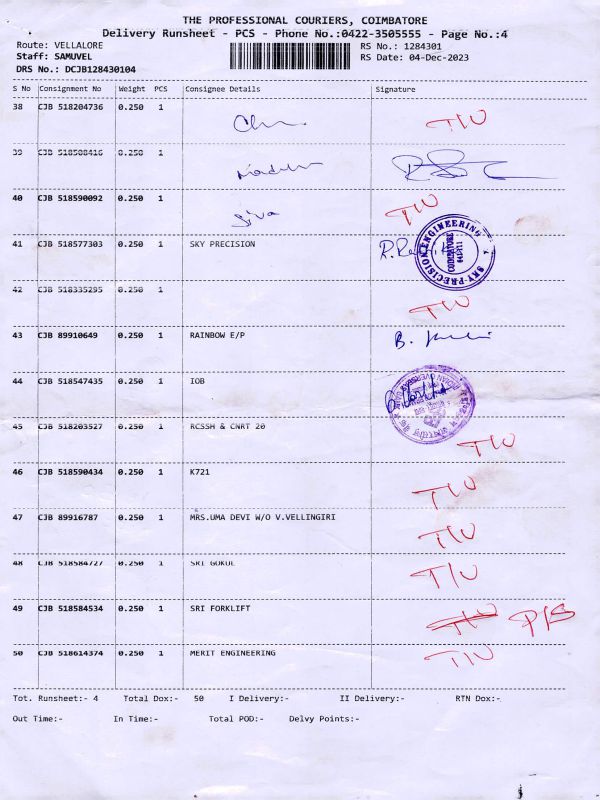 THE PROFESSIONAL COURIERS, COIMBATORE
Delivery Runsheet - PCS - Phone No.:0422-3505555 - Page No.:4
Route: VELLALORE RS No.: 1284301
Staff: SAMUVEL RS Date: 04-Dec-2023
DRS No.: DCJB128430104
S No Consignment No Weight PCS Consignee Details Signature
38 CJB 518204736 0.250 1 T/U
39 CJB 518508416 0.250 1
40 CJB 518590092 0.250 1 Siva T/U
41 CJB 518577303 0.250 1 SKY PRECISION SKY PRECISION ENGINEERING COIMBATORE
42 CJB 518335295 0.250 1 T/U
43 CJB 89910649 0.250 1 RAINBOW E/P B.
44 CJB 518547435 0.250 1 IOB
45 CJB 518203527 0.250 1 RCSSH & CNRT 20 T/U
46 CJB 518590434 0.250 1 K721 T/U
47 CJB 89916787 0.250 1 MRS.UMA DEVI W/O V.VELLINGIRI T/U
48 CJB 518584727 0.250 1 SRI GOKUL T/U
49 CJB 518584534 0.250 1 SRI FORKLIFT T/U P/S
50 CJB 518614374 0.250 1 MERIT ENGINEERING T/U
Tot. Runsheet:- 4 Total Dox:- 50 I Delivery:- II Delivery:- RTN Dox:-
Out Time:- In Time:- Total POD:- Delvy Points:-